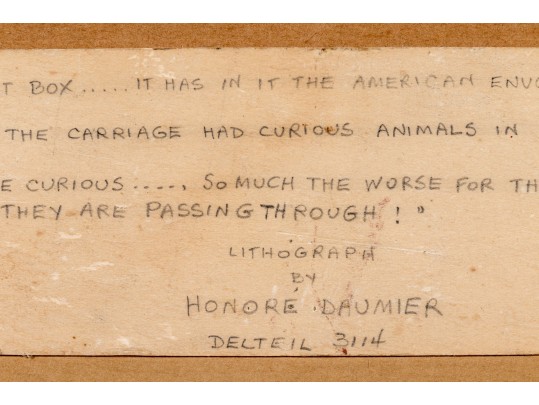 T BOX.....IT HAS IN IT THE AMERICAN ENVO
THE CARRIAGE HAD CURIOUS ANIMALS IN
E CURIOUS...., SO MUCH THE WORSE FOR TH
THEY ARE PASSING THROUGH! "
LITHOGRAPH
BY
HONORÉ DAUMIER
DELTEIL 3114